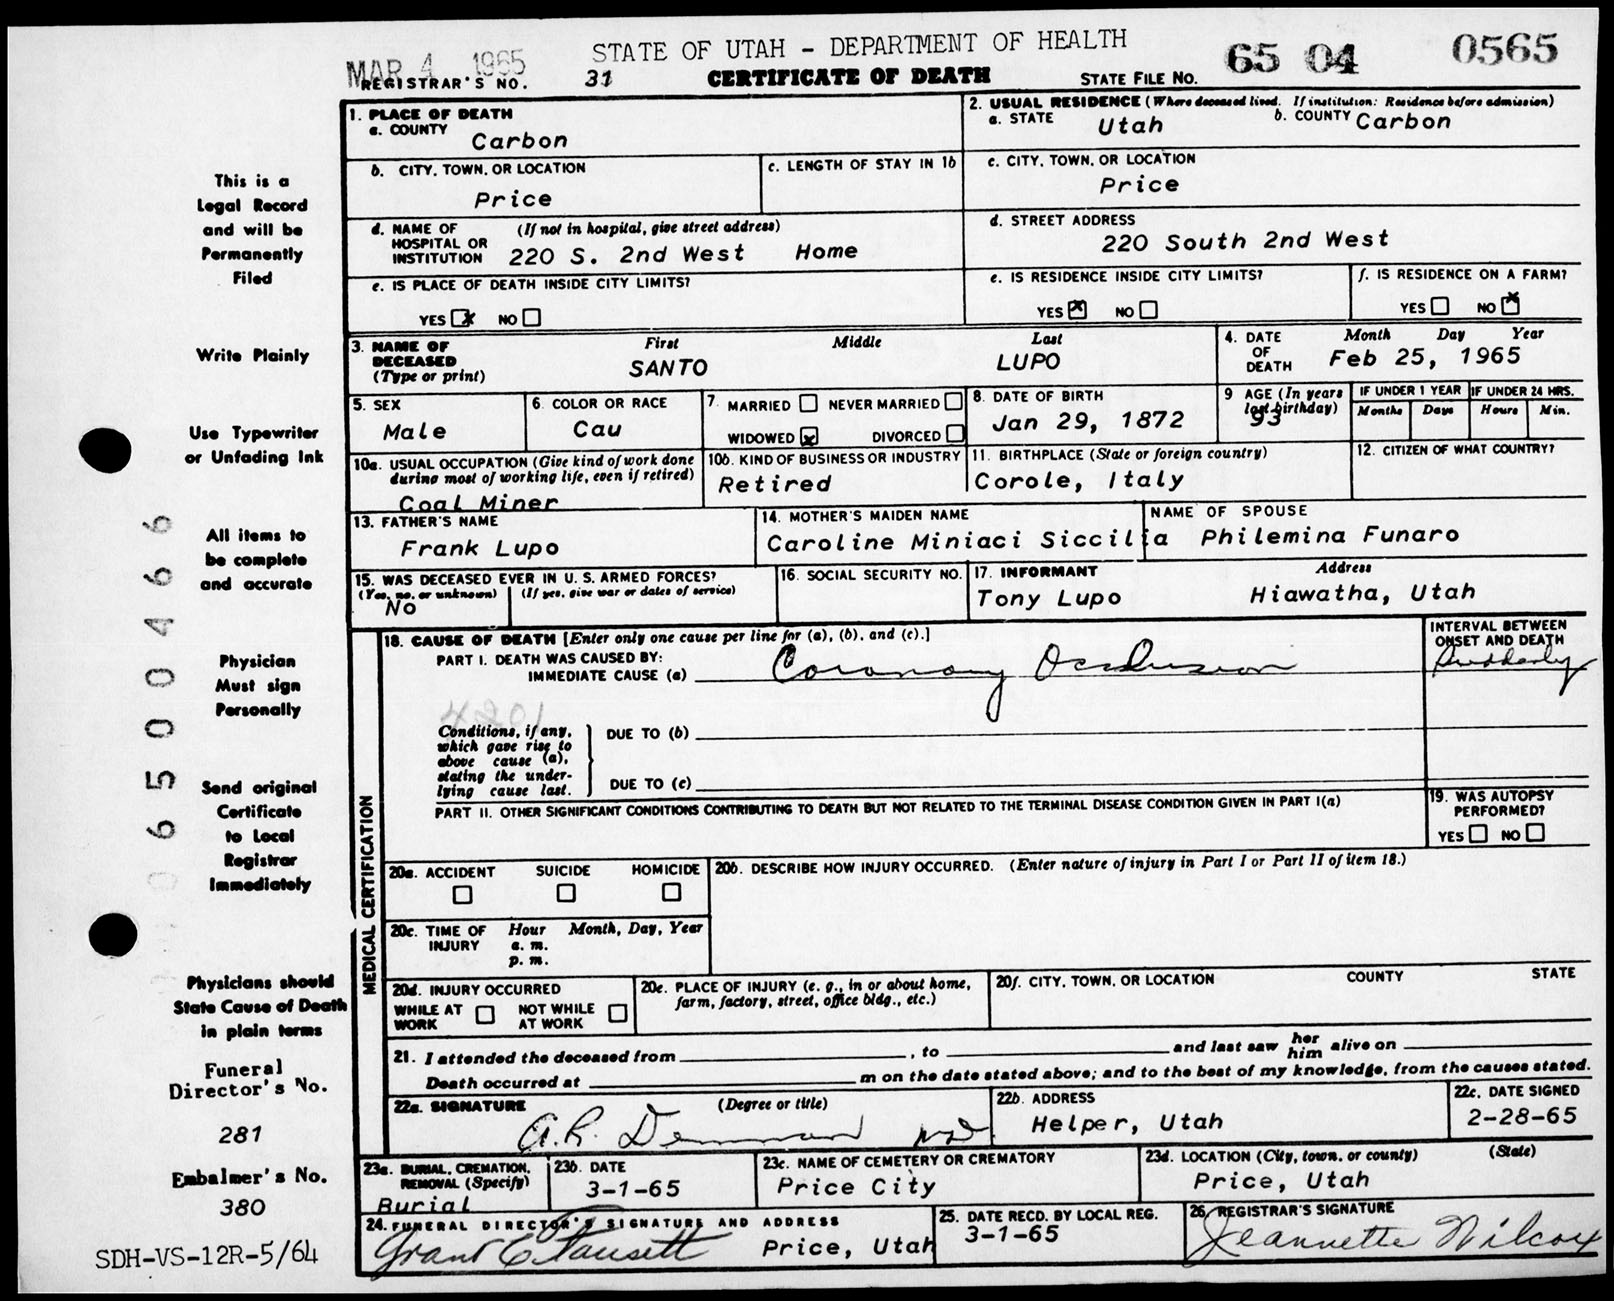 STATE OF UTAH - DEPARTMENT OF HEALTH
MAR 4 1965
REGISTRAR'S NO. 31 CERTIFICATE OF DEATH STATE FILE NO. 65 04 0565
This is a
Legal Record
and will be
Permanently
Filed
Write Plainly
Use Typewriter
or Unfading Ink
All items to
be complete
and accurate
Physician
Must sign
Personally
Send original
Certificate
to Local
Registrar
Immediately
Physicians should
State Cause of Death
in plain terms
Funeral
Director's No.
281
Embalmer's No.
380
SDH-VS-12R-5/64
0650 0466
1. PLACE OF DEATH
a. COUNTY
Carbon
2. USUAL RESIDENCE (Where deceased lived. If institution: Residence before admission)
a. STATE Utah b. COUNTY Carbon
b. CITY, TOWN, OR LOCATION
Price
c. LENGTH OF STAY IN 1b
c. CITY, TOWN, OR LOCATION
Price
d. NAME OF HOSPITAL OR INSTITUTION (If not in hospital, give street address)
220 S. 2nd West Home
d. STREET ADDRESS
220 South 2nd West
e. IS PLACE OF DEATH INSIDE CITY LIMITS?
YES x NO
e. IS RESIDENCE INSIDE CITY LIMITS?
YES x NO
f. IS RESIDENCE ON A FARM?
YES NO x
3. NAME OF DECEASED (Type or print) First Middle Last
SANTO LUPO
4. DATE OF DEATH Month Day Year
Feb 25, 1965
5. SEX
Male
6. COLOR OR RACE
Cau
7. MARRIED NEVER MARRIED
WIDOWED x DIVORCED
8. DATE OF BIRTH
Jan 29, 1872
9 AGE (In years last birthday)
93
IF UNDER 1 YEAR IF UNDER 24 HRS.
Months Days Hours Min.
10a. USUAL OCCUPATION (Give kind of work done during most of working life, even if retired)
Coal Miner
10b. KIND OF BUSINESS OR INDUSTRY
Retired
11. BIRTHPLACE (State or foreign country)
Corole, Italy
12. CITIZEN OF WHAT COUNTRY?
13. FATHER'S NAME
Frank Lupo
14. MOTHER'S MAIDEN NAME
Caroline Miniaci Siccilia
NAME OF SPOUSE
Philemina Funaro
15. WAS DECEASED EVER IN U. S. ARMED FORCES?
(Yes, no, or unknown) (If yes, give war or dates of service)
No
16. SOCIAL SECURITY NO.
17. INFORMANT Address
Tony Lupo Hiawatha, Utah
MEDICAL CERTIFICATION
18. CAUSE OF DEATH [Enter only one cause per line for (a), (b), and (c).]
INTERVAL BETWEEN ONSET AND DEATH
PART I. DEATH WAS CAUSED BY:
IMMEDIATE CAUSE (a) Coronary Occlusion Suddenly
4201
Conditions, if any, which gave rise to above cause (a), stating the underlying cause last.
DUE TO (b)
DUE TO (c)
PART II. OTHER SIGNIFICANT CONDITIONS CONTRIBUTING TO DEATH BUT NOT RELATED TO THE TERMINAL DISEASE CONDITION GIVEN IN PART I(a)
19. WAS AUTOPSY PERFORMED?
YES NO
20a. ACCIDENT SUICIDE HOMICIDE
20b. DESCRIBE HOW INJURY OCCURRED. (Enter nature of injury in Part I or Part II of item 18.)
20c. TIME OF INJURY Hour Month, Day, Year
a. m.
p. m.
20d. INJURY OCCURRED
WHILE AT WORK NOT WHILE AT WORK
20e. PLACE OF INJURY (e. g., in or about home, farm, factory, street, office bldg., etc.)
20f. CITY, TOWN, OR LOCATION COUNTY STATE
21. I attended the deceased from , to and last saw her him alive on
Death occurred at m on the date stated above; and to the best of my knowledge, from the causes stated.
22a. SIGNATURE (Degree or title)
A. R. Demman MD.
22b. ADDRESS
Helper, Utah
22c. DATE SIGNED
2-28-65
23a. BURIAL, CREMATION, REMOVAL (Specify)
Burial
23b. DATE
3-1-65
23c. NAME OF CEMETERY OR CREMATORY
Price City
23d. LOCATION (City, town, or county) (State)
Price, Utah
24. FUNERAL DIRECTOR'S SIGNATURE AND ADDRESS
Grant E Fausett Price, Utah
25. DATE RECD. BY LOCAL REG.
3-1-65
26. REGISTRAR'S SIGNATURE
Jeannette Wilcox